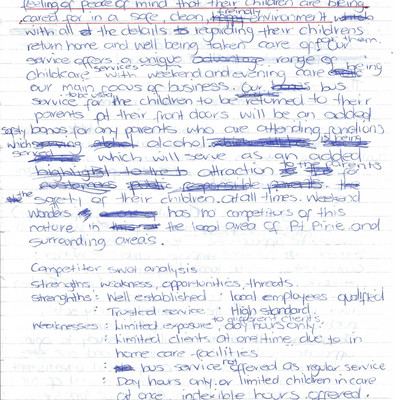 feeling of peace of mind that their children are being
cared for in a safe, clean, friendly environment
with all the details regarding their childrens
return home and well being taken care of for them. Our
service offers a unique range of
childcare services with weekend and evening care being
our main focus of business. bus
service for the children to be returned to their
parents at their front doors will be an added
safety bonus for any parents who are attending functions
which alcohol is being
served which will serve as an added
attraction to the parents for
the safety of their children at all times. Weekend
Wonders has no competitors of this
nature in the local area of Pt Pirie and
surrounding areas.
Competitor swot analysis
strengths, weakness, opportunities, threats.
strengths: Well established : local employees - qualified
: Trusted service : High standard
Weaknesses: Limited exposure to different clients, day hours only.
: Limited clients at one time due to in
home care facilities
: bus service not offered as regular service
: Day hours only or limited children in care
at once. inflexible hours offered.